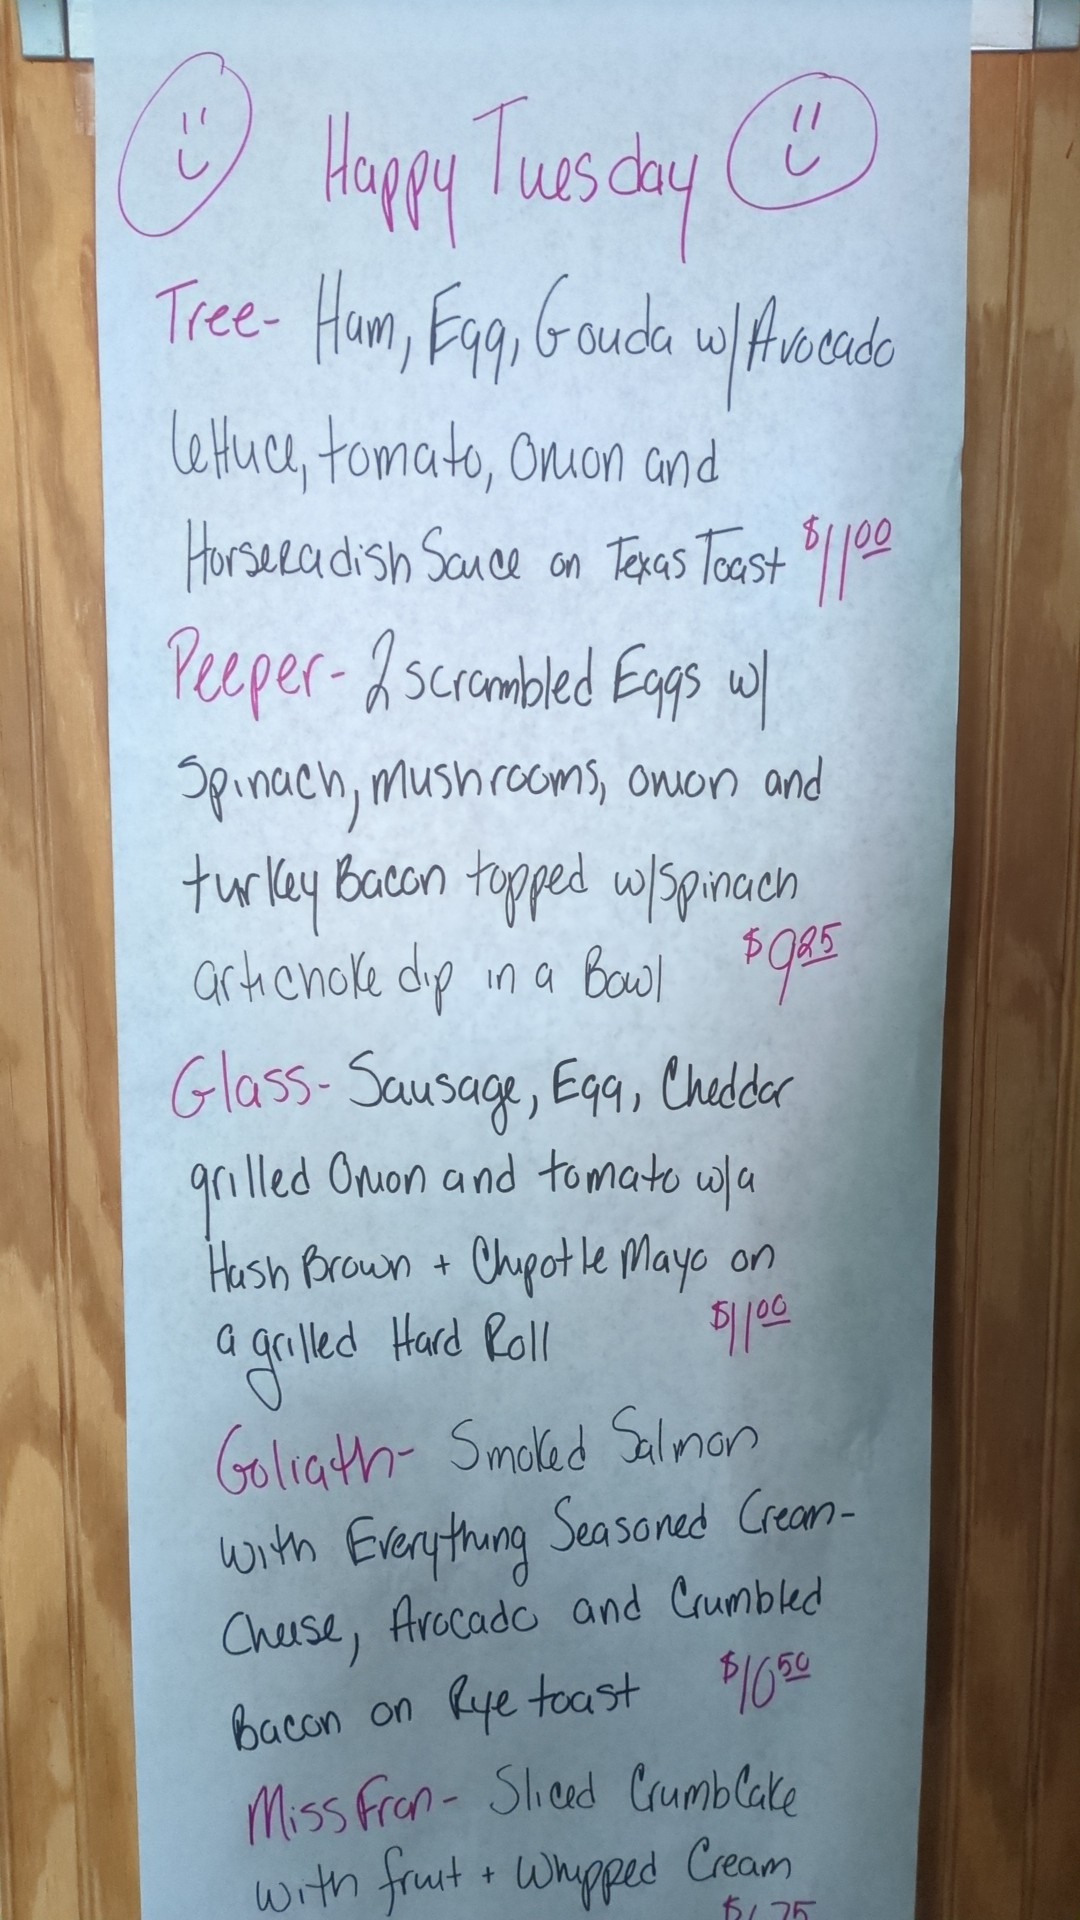 Happy Tuesday
Tree- Ham, Egg, Gouda w/Avocado
lettuce, tomato, Onion and
Horseradish Sauce on Texas Toast $11.00
Peeper- 2 scrambled Eggs w/
Spinach, mushrooms, onion and
turkey Bacon topped w/spinach
artichoke dip in a Bowl $9.25
Glass- Sausage, Egg, Cheddar
grilled Onion and tomato w/a
Hash Brown + Chipotle Mayo on
a grilled Hard Roll $11.00
Goliath- Smoked Salmon
with Everything Seasoned Cream-
Cheese, Avocado and Crumbled
Bacon on Rye toast $10.50
Miss Fran- Sliced Crumb Cake
with fruit + Whipped Cream